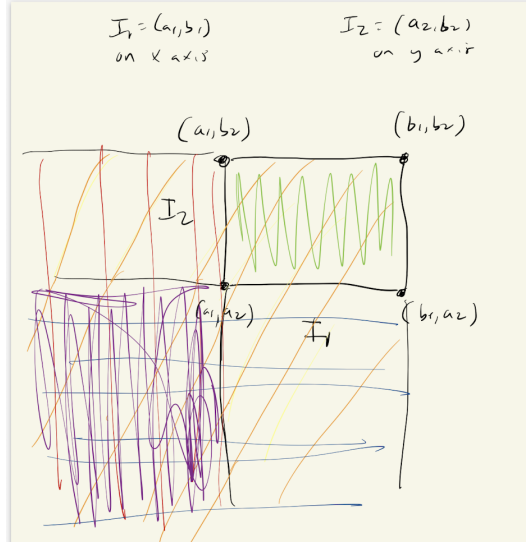 I₁ = (a₁,b₁)
on x axis
I₂ = (a₂,b₂)
on y axis
(a₁,b₂)
(b₁,b₂)
I₂
(a₁,a₂)
(b₁,a₂)
I₁